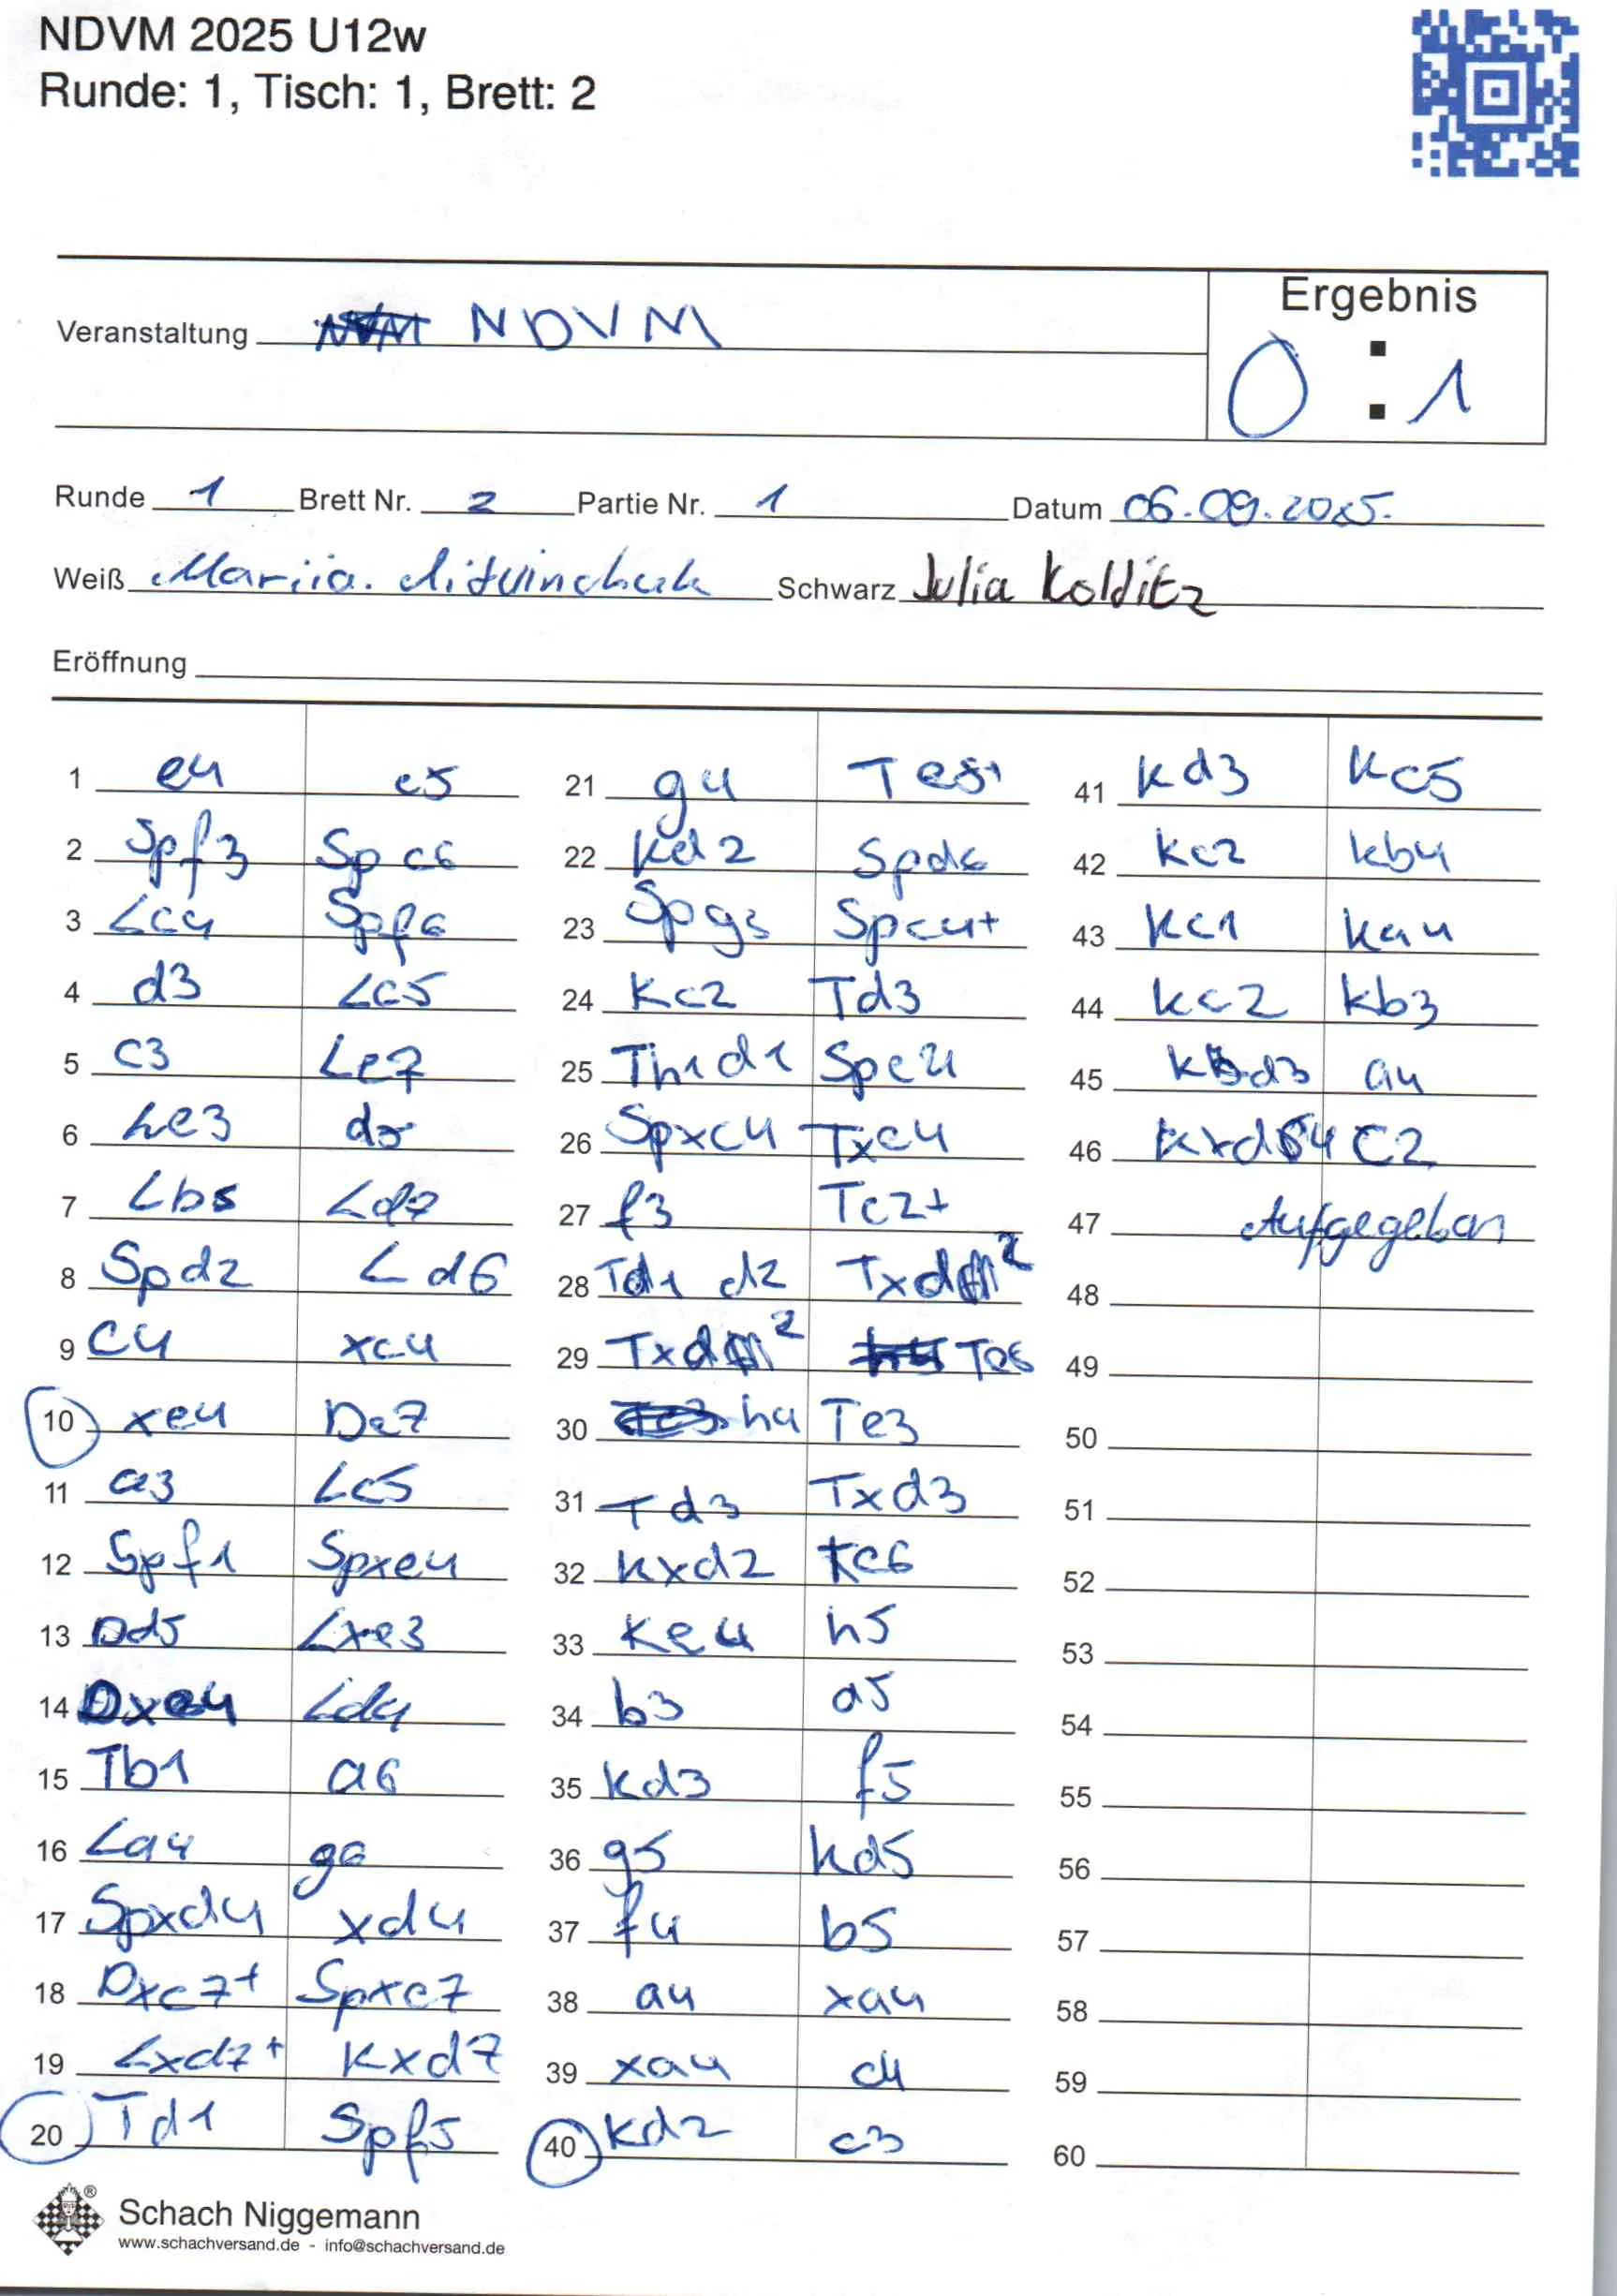 NDVM 2025 U12w
Runde: 1, Tisch: 1, Brett: 2
Ergebnis
Veranstaltung NDVM
0 : 1
Runde 1 Brett Nr. 2 Partie Nr. 1 Datum 06.09.2025.
Weiß Mariia Schwarz Julia Kolditz
Eröffnung
1 e4 e5
2 Spf3 Spc6
3 Lc4 Spf6
4 d3 Lc5
5 c3 Le7
6 Le3 d5
7 Lb5 Ld7
8 Spd2 Ld6
9 C4 xc4
10 xe4 De7
11 a3 Lc5
12 Spf1 Spxe4
13 Dd5 Lxe3
14 Dxe4 Ld4
15 Tb1 a6
16 La4 g6
17 Spxd4 xd4
18 Dxe7+ Spxe7
19 Lxd7+ Kxd7
20 Td1 Spf5
21 g4 Te8+
22 Kd2 Spd6
23 Spg3 Spc4+
24 Kc2 Td3
25 Th1d1 Spe4
26 Spxc4 Txc4
27 f3 Te2+
28 Td1 d2 Txd2
29 Txd2 Te6
30 h4 Te3
31 Td3 Txd3
32 Kxd2 Kc6
33 Ke4 h5
34 b3 a5
35 Kd3 f5
36 g5 Kd5
37 f4 b5
38 a4 xa4
39 xa4 c4
40 Kd2 c3
41 Kd3 Kc5
42 Kc2 Kb4
43 Kc1 Ka4
44 Kc2 Kb3
45 Kd3 a4
46 Kxd4 C2
47 Aufgegeben
48
49
50
51
52
53
54
55
56
57
58
59
60
Schach Niggemann
www.schachversand.de - info@schachversand.de